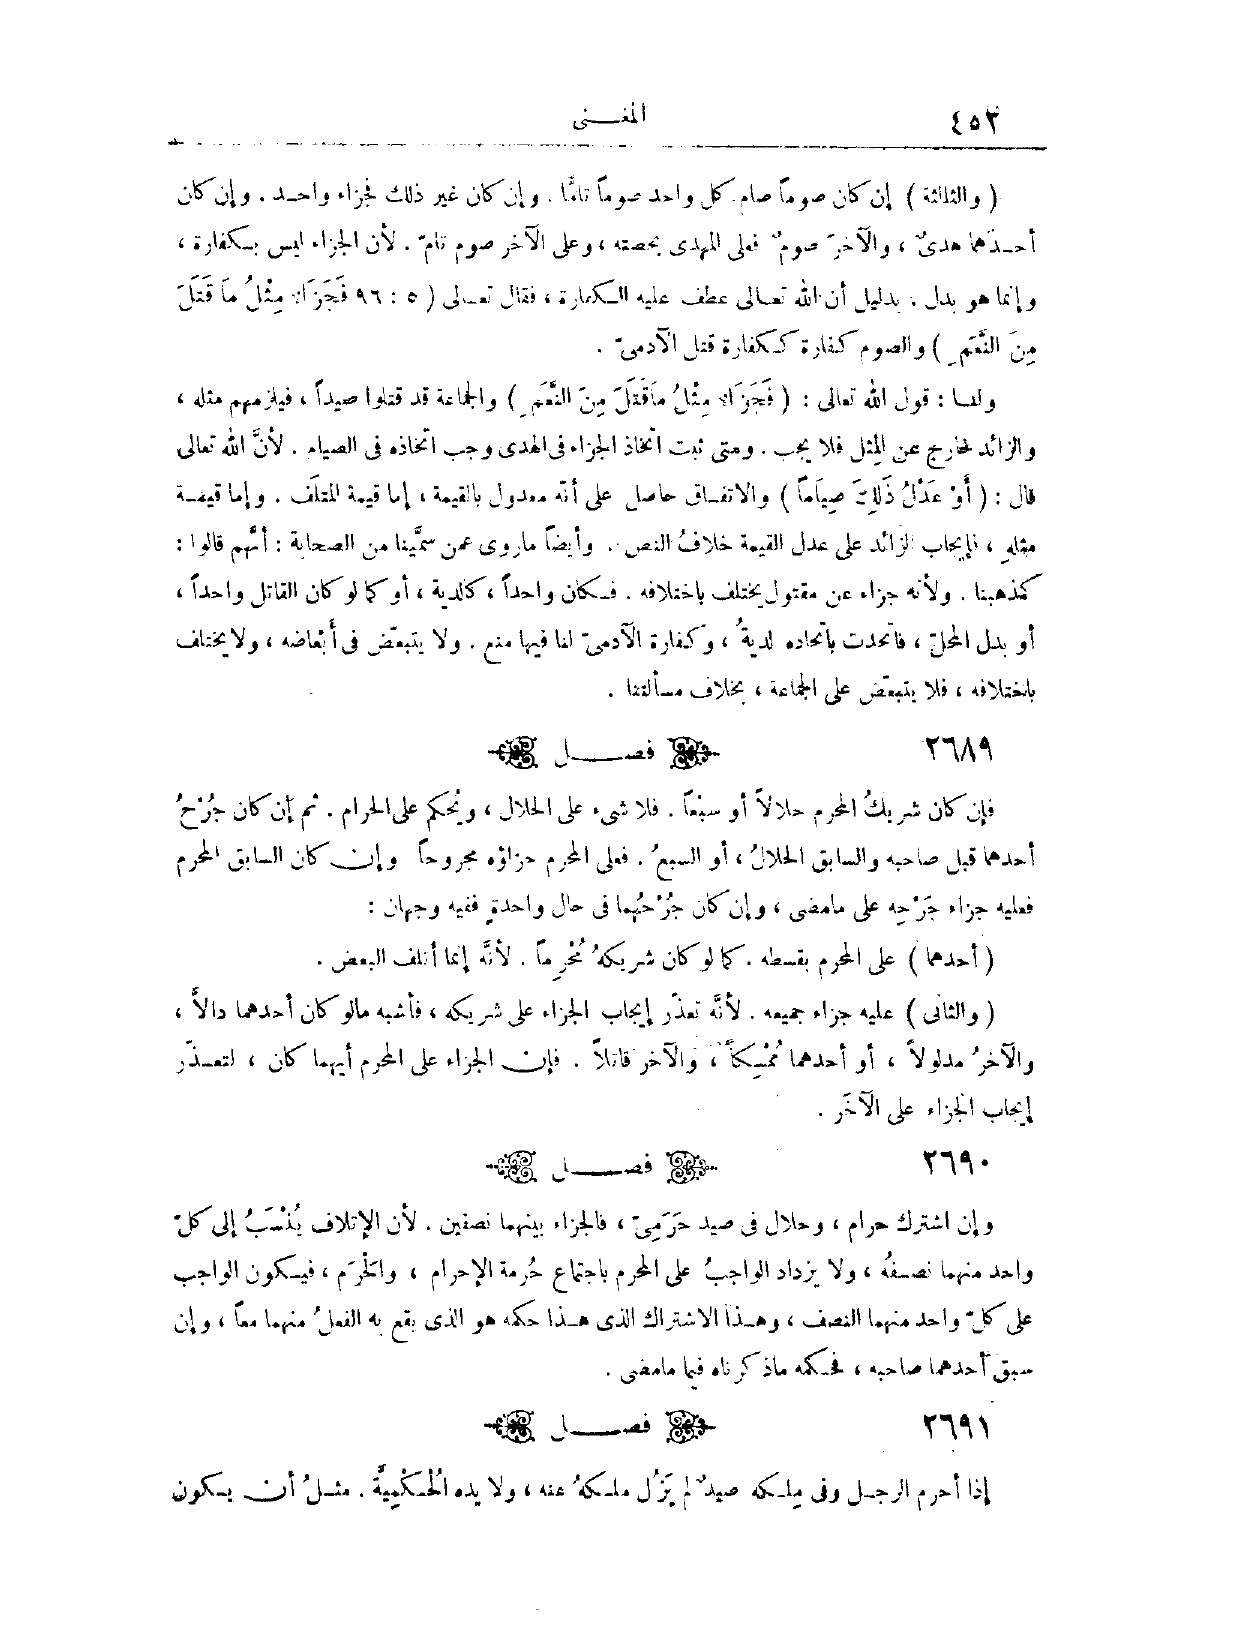 ٤٥٢
المغـــنى
( والثالثة ) إن كان صوماً صام كل واحد صوماً تامًّا . وإن كان غير ذلك فجزاء واحـد . وإن كان
أحـدُهما هدىٌ ، والآخرَ صومٌ فعلى المهدى بحصته ، وعلى الآخر صوم تامّ . لأن الجزاء ليس بـكفارة ،
وإنما هو بدل . بدليل أن الله تعـالى عطف عليه الـكفارة ، فقال تعـالى ( ٥ : ٩٦ فَجَزَاءٌ مِثْلُ مَا قَتَلَ
مِنَ النَّعَمِ ) والصوم كفارة كـكفارة قتل الآدمىّ .
ولنـا : قول الله تعالى : ( فَجَزَاءٌ مِثْلُ مَا قَتَلَ مِنَ النَّعَمِ ) والجماعة قد قتلوا صيداً ، فيلزمهم مثله ،
والزائد خارج عن المِثل فلا يجب . ومتى ثبت اتّخاذ الجزاء فى الهدى وجب اتّخاذه فى الصيام . لأنَّ الله تعالى
قال : ( أَوْ عَدْلُ ذَلِكَ صِيَامًا ) والاتفـاق حاصل على أنه معدول بالقيمة ، إما قيمة المتلَف . وإما قيمـة
مثلهِ ، فإيجاب الزائد على عدل القيمة خلافُ النص . وأيضاً ماروى عمن سمَّينا من الصحابة : أنَّهم قالوا :
كمذهبنا . ولأنه جزاء عن مقتول يختلف باختلافه . فـكان واحداً ، كالدية ، أو كما لو كان القاتل واحداً ،
أو بدل المحلّ ، فاتّحدت باتّحاده لديةُ ، وَكفارة الآدمىّ لنا فيها منع . ولا يتبعّض فى أبْعاضه ، ولا يختلف
باختلافه ، فلا يتبعّض على الجماعة ، بخلاف مسألتنا .
٢٦٨٩
فصـــل
فإن كان شريكُ المحرم حلالاً أو سبُعاً . فلا شىء على الحلال ، ويُحكم على الحرام . ثم إن كان جُرْحُ
أحدهما قبل صاحبه والسابق الحلالُ ، أو السبعُ . فعلى المحرم جزاؤه مجروحاً وإن كان السابق المحرم
فعليه جزاء جَرْحِه على مامضى ، وإن كان جُرْحُهما فى حال واحدةٍ ففيه وجهان :
( أحدهما ) على المحرم بقسطه . كما لو كان شريكهُ مُحْرِماً . لأنَّه إنما أتلف البعض .
( والثانى ) عليه جزاء جميعه . لأنَّه تعذّر إيجاب الجزاء على شريكه ، فأشبه مالو كان أحدهما دالاًّ ،
والآخرُ مدلولاً ، أو أحدهما مُمْسِكاً ، والآخر قاتلاً . فإن الجزاء على المحرم أيهما كان ، لتعـذّر
إيجاب الجزاء على الآخَر .
٢٦٩٠
فصـــل
وإن اشترك حرام ، وحلال فى صيد حَرَمِىّ ، فالجزاء بينهما نصفين . لأن الإتلاف يُنْسَبُ إلى كلّ
واحد منهما نصـفُه ، ولا يزداد الواجبُ على المحرم باجتماع حُرمة الإحرام ، والحَرَم ، فيـكون الواجب
على كلّ واحد منهما النصف ، وهـذا الاشتراك الذى هـذا حكمه هو الذى يقع به الفعلُ منهما معاً ، وإن
سبق أحدهما صاحبه ، فحـكمه ماذكرناه فيما مامضى .
٢٦٩١
فصـــل
إذا أحرم الرجـل وفى مِلـكه صيدٌ لم يَزُل ملـكهُ عنه ، ولا يده الُحـكْمِيةُّ . مثـلُ أن يـكون